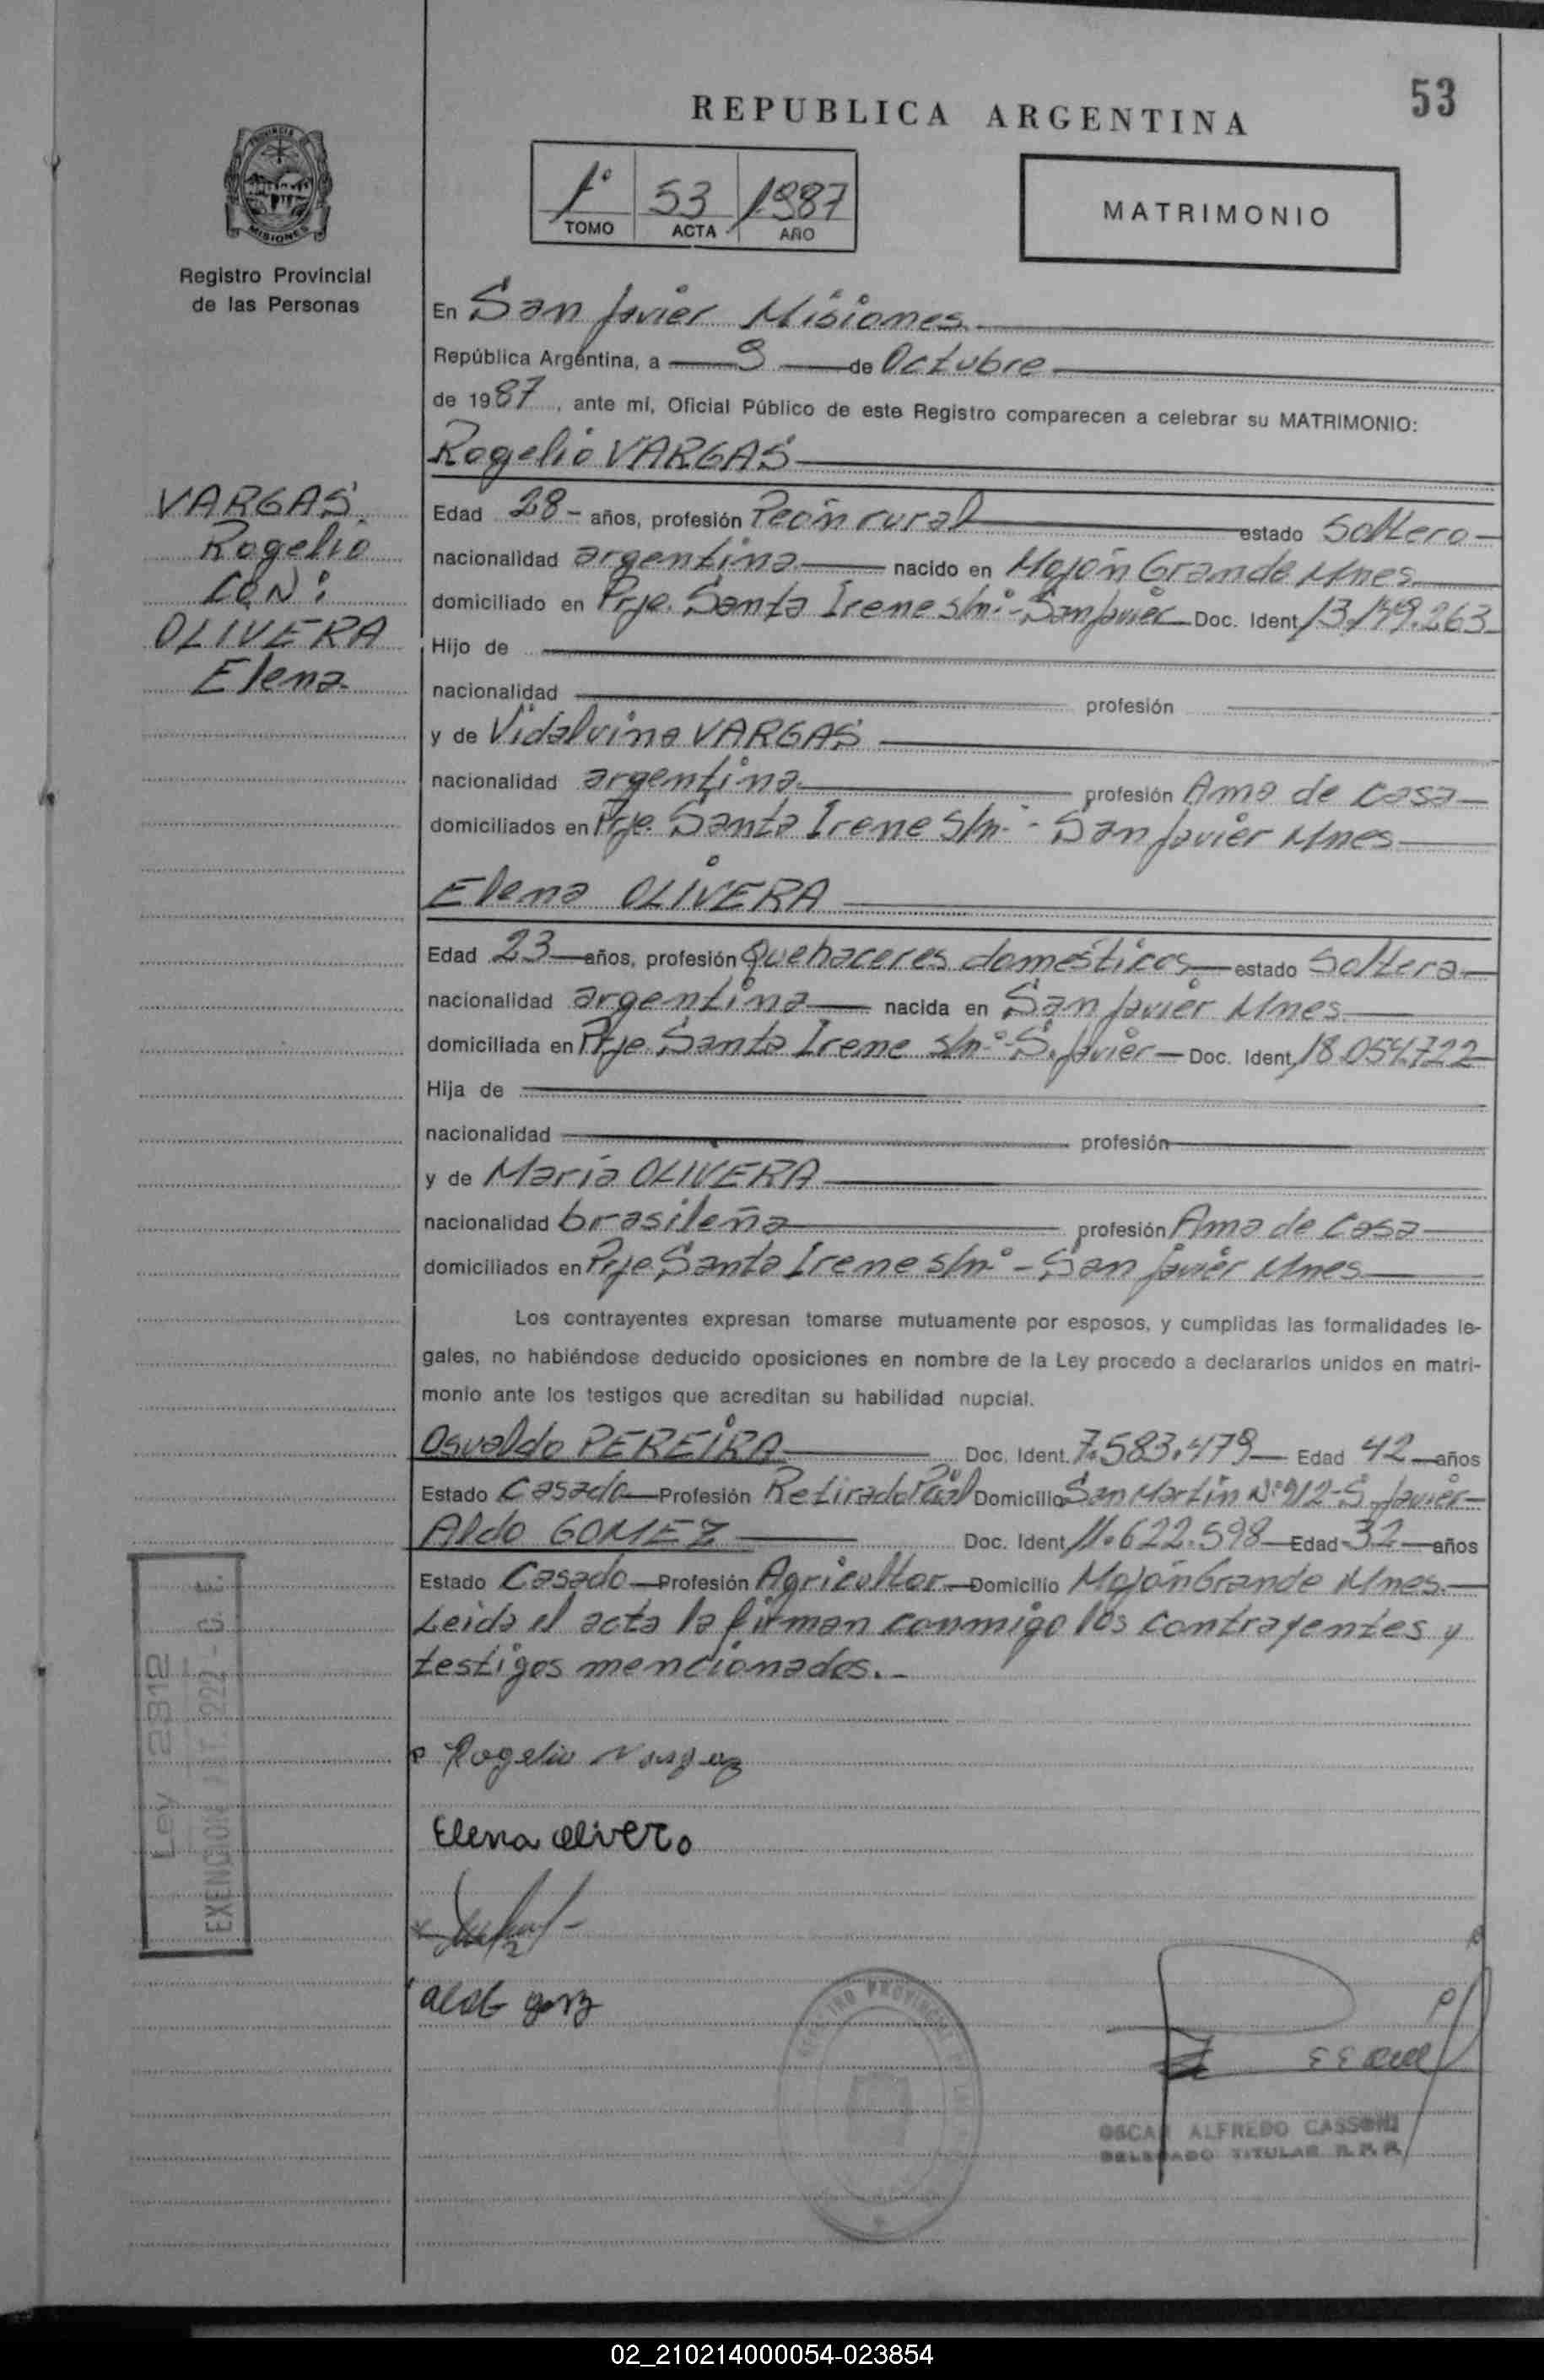 53
REPUBLICA ARGENTINA
1° 53 1987
TOMO ACTA AÑO
MATRIMONIO
PROVINCIA
MISIONES
Registro Provincial
de las Personas
VARGAS,
Rogelio
CON:
OLIVERA
Elena
En San Javier Misiones
República Argentina, a 9 de Octubre
de 1987, ante mí, Oficial Público de este Registro comparecen a celebrar su MATRIMONIO:
Rogelio VARGAS
Edad 28 - años, profesión Peón rural estado Soltero
nacionalidad argentina nacido en Mojón Grande Mnes
domiciliado en Prje. Santa Irene s/n° - San Javier Doc. Ident.
Hijo de
nacionalidad profesión
y de Vidalvina VARGAS
nacionalidad argentina profesión Ama de casa
domiciliados en Prje. Santa Irene s/n° - San Javier Mnes
Elena OLIVERA
Edad 23 años, profesión Quehaceres domésticos estado Soltera
nacionalidad argentina nacida en San Javier Mnes
domiciliada en Prje. Santa Irene s/n° - S. Javier Doc. Ident. 18.054.722
Hija de
nacionalidad profesión
y de María OLIVERA
nacionalidad brasileña profesión Ama de casa
domiciliados en Prje Santa Irene s/n° - San Javier Mnes
Los contrayentes expresan tomarse mutuamente por esposos, y cumplidas las formalidades le-
gales, no habiéndose deducido oposiciones en nombre de la Ley procedo a declararlos unidos en matri-
monio ante los testigos que acreditan su habilidad nupcial.
Osvaldo PEREIRA Doc. Ident. 7.583.479 Edad 42 años
Estado Casado Profesión Retirado Domicilio San Martín N° 912 - S. Javier
Aldo GOMEZ Doc. Ident. 11.622.598 Edad 32 años
Estado Casado Profesión Agricultor Domicilio Mojón Grande Mnes.
Leida el acta la firman conmigo los contrayentes y
testigos mencionados.-
Rogelio Vargas
Elena olivero
OSCAR ALFREDO CASSONI
DELEGADO TITULAR R.P.P.
REGISTRO PROVINCIAL DE LAS
Ley 2812
EXENCION 222 - G.
02_210214000054-023854